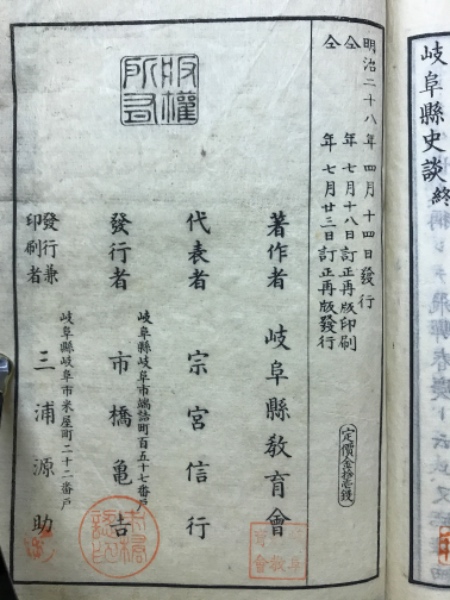 岐阜縣史談終
明治二十八年四月十四日發行
仝年七月十八日訂正再版印刷
仝年七月廿三日訂正再版發行
定價金拾壱錢
著作者 岐阜縣教育會
代表者 宗宮信行
岐阜縣岐阜市端詰町百五十七番戸
發行者 市橋亀吉
岐阜縣岐阜市米屋町二十二番戸
發行兼印刷者 三浦源助
版權所有